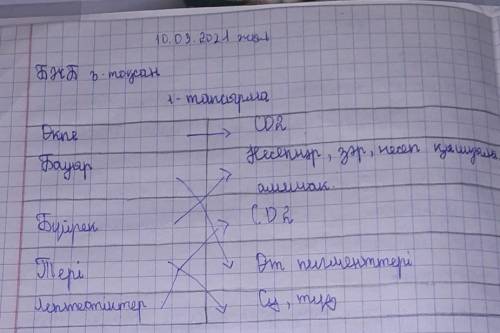 10.03.2021 жыл
БЖБ 3-тоқсан
1-тапсырма
Өкпе → CO2
Бауыр Несепнәр, зәр, несеп қышқылы
аммиак.
Бүйрек CO2
Тері Өт пигменттері
Су, тұз